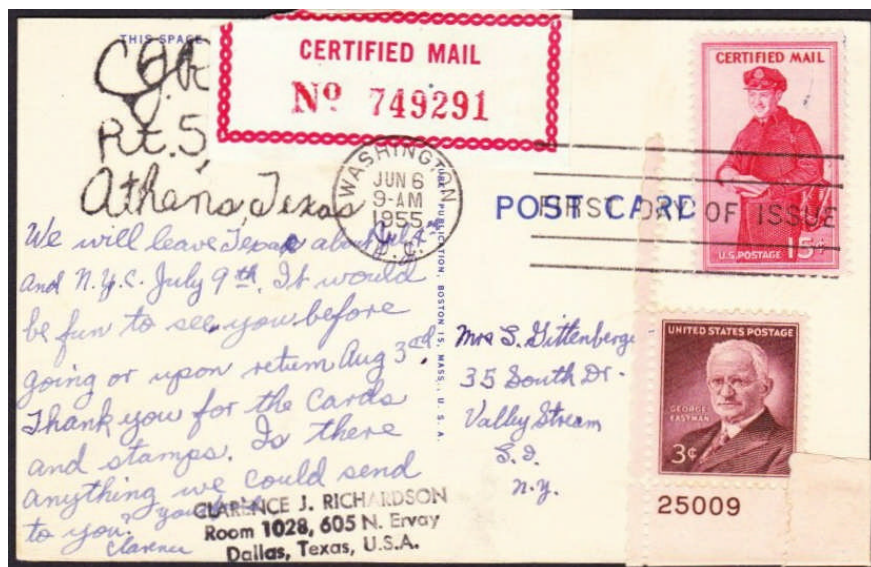 THIS SPACE
CERTIFIED MAIL
Nº 749291
Rt. 5,
Athens, Texas
WASHINGTON
JUN 6
9-AM
1955
D. C.
POST CARD
FIRST DAY OF ISSUE
CERTIFIED MAIL
U.S. POSTAGE 15¢
We will leave Texas about July 4th
and N.Y.C. July 9th. It would
be fun to see you before
going or upon return Aug 3rd.
Thank you for the cards
and stamps. Is there
anything we could send
to you?
Clarence
CLARENCE J. RICHARDSON
Room 1028, 605 N. Ervay
Dallas, Texas, U.S.A.
PUBLICATION, BOSTON 15, MASS., U. S. A.
Mrs S. Gittenberger
35 South Dr.
Valley Stream
L.I.
N.Y.
UNITED STATES POSTAGE
GEORGE
EASTMAN
3¢
25009